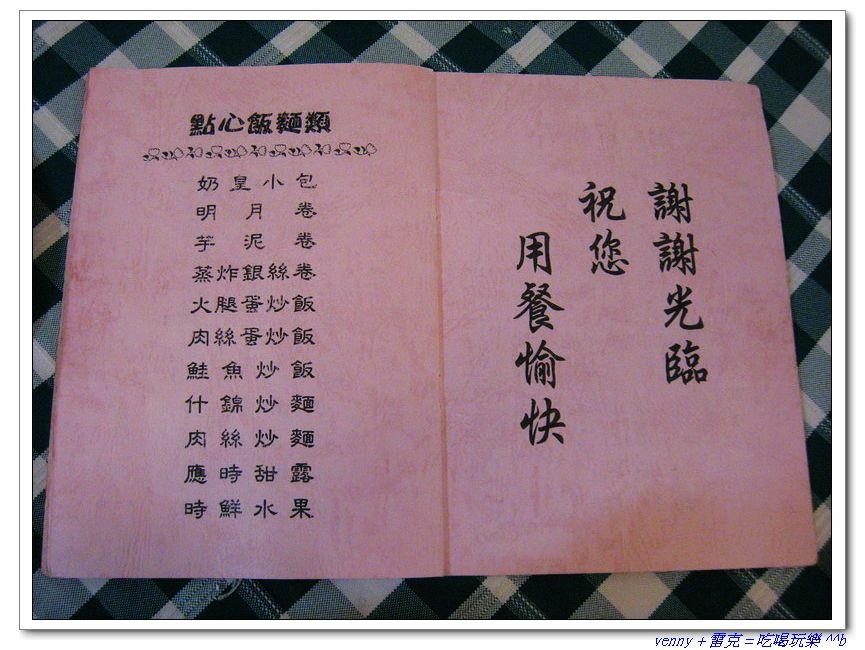 點心飯麵類
奶皇小包
明月卷
芋泥卷
蒸炸銀絲卷
火腿蛋炒飯
肉絲蛋炒飯
鮭魚炒飯
什錦炒麵
肉絲炒麵
應時甜露
時鮮水果
謝謝光臨
祝您
用餐愉快
venny + 雷克 = 吃喝玩樂 ^^b